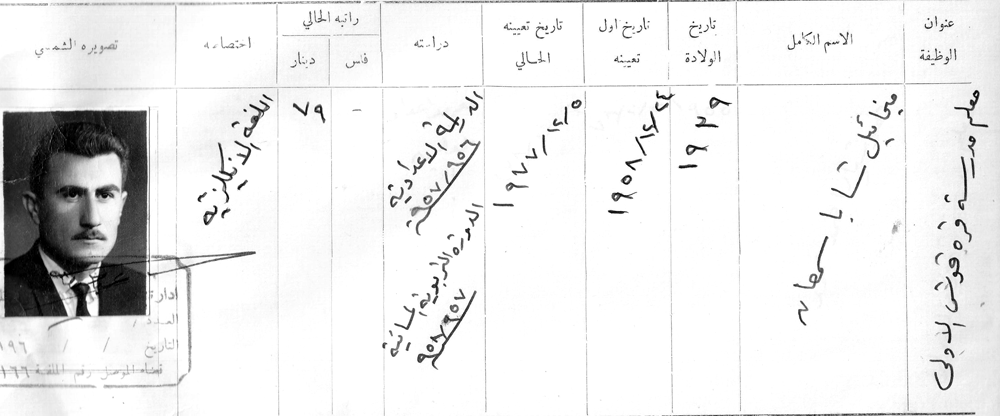 عنوان الوظيفة
الاسم الكامل
تاريخ الولادة
تاريخ اول تعيينه
تاريخ تعيينه الحالي
دراسته
راتبه الحالي
فلس
دينار
اختصاصه
تصويره الشمسي
معلم مدرسة قره قوش الاولى
ميخائيل شابا سمعان
١٩٣٩
١٩٥٨/١٢/٢٤
-
٧٩
الدراسة الاعدادية
٩٥٦/٩٥٧
الدورة التربوية المسائية
٩٥٧/٩٥٨
اللغة الانكليزية
ادارة
العدد /
التاريخ / / ١٩٦
قضاء الموصل رقم الملفة ١٦٦